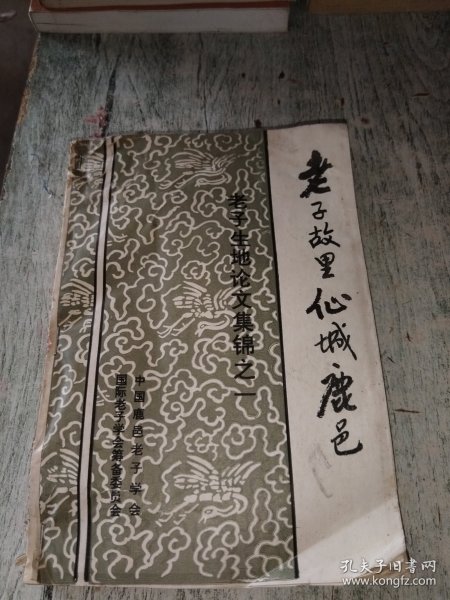 老子故里仙城鹿邑
老子生地论文集锦之一
中国鹿邑老子学会
国际老子学会筹备委员会
孔夫子旧书网
www.kongfz.com